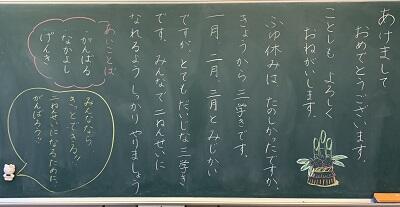 あけまして
おめでとうございます。
ことしも よろしく
おねがいします。
ふゆ休みは たのしかったですか。
きょうから 三学きです。
一月、二月、三月とみじかい
ですが、とてもだいじな三学き
です。みんなで二ねんせいに
なれるよう しっかり やりましょう
あいことば
がんばる
なかよし
げんき
みんななら
きっとできる!!
二ねんせいになるために
がんばろう!!